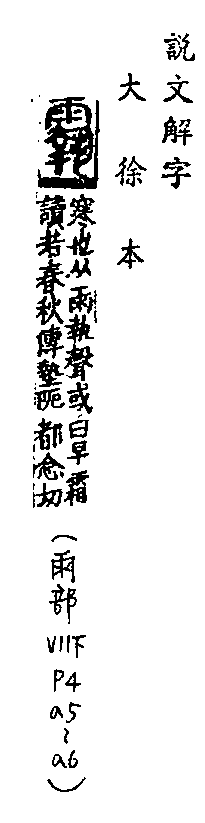 說文解字
大徐本
䨴
寒也从雨執聲或曰早霜
讀若春秋傳墊阨 都念切
(雨部VII下P4a5~a6)